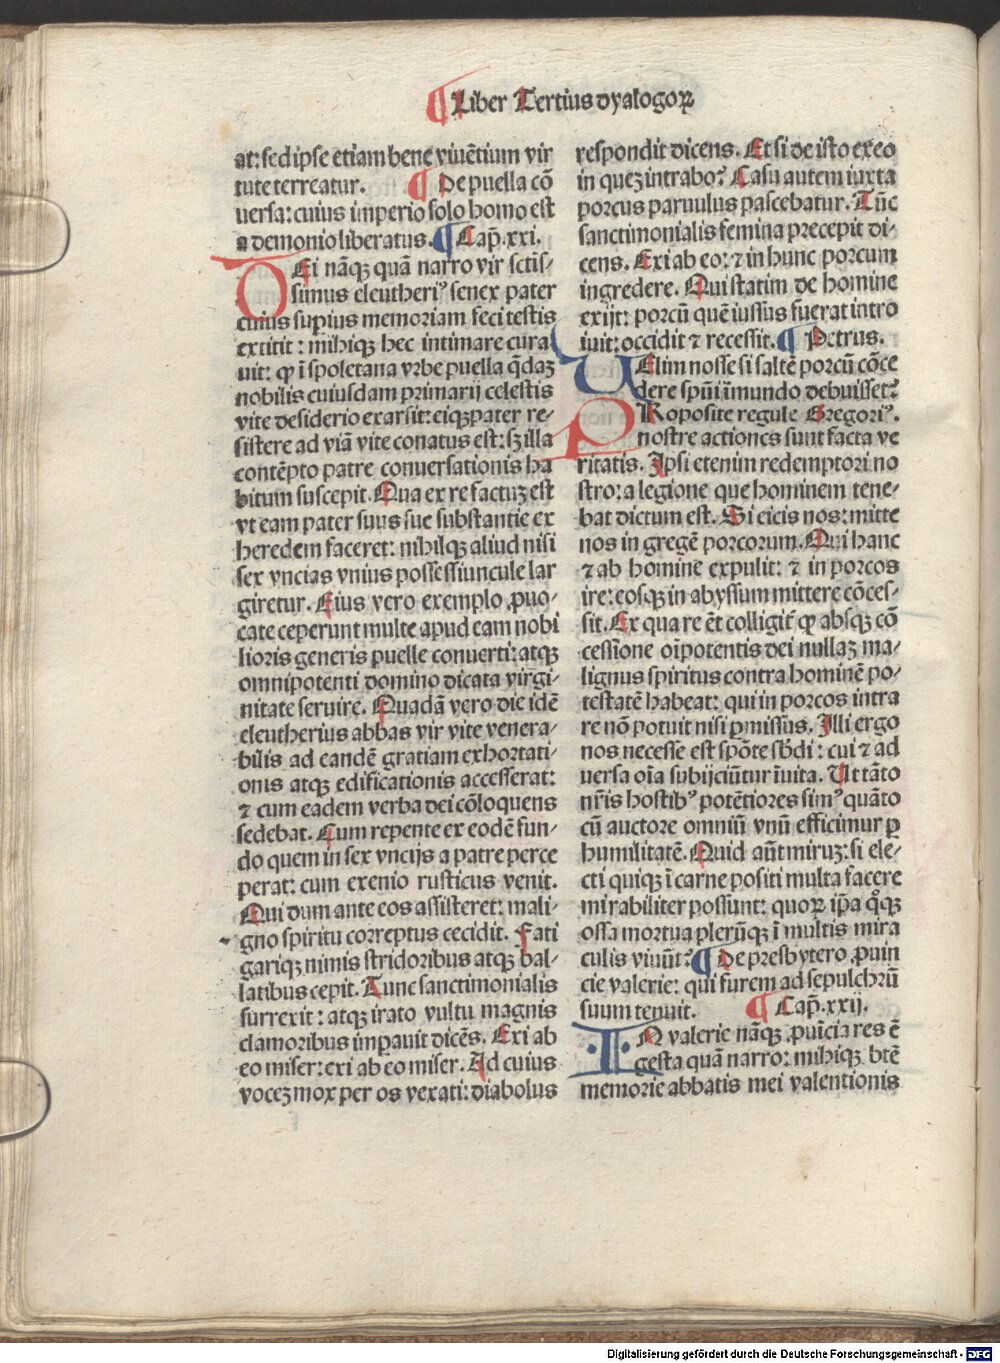 ¶ Liber Tertius dyalogoꝝ
at: sed ipse etiam bene viuētium vir
tute terreatur. ¶ De puella cō
uersa: cuius imperio solo homo est
a demonio liberatus. ¶ Cap̄. xxi.
Ei nāqꝫ quā narro vir sctis⸗
simus eleutheriꝰ senex pater
cuius supius memoriam feci testis
extitit: mihiqꝫ hec intimare cura
uit: ꝙ ī spoletana vrbe puella q̄daꝫ
nobilis cuiusdam primarij celestis
vite desiderio exarsit: eiqꝫ pater re⸗
sistere ad viā vite conatus est: sꝫ illa
contēpto patre conuersationis ha
bitum suscepit. Qua ex re factuꝫ est
vt eam pater suus sue substantie ex
heredem faceret: nihilqꝫ aliud nisi
sex vncias vnius possessiuncule lar
giretur. Eius vero exemplo ꝓuo⸗
cate ceperunt multe apud eam nobi
lioris generis puelle conuerti: atqꝫ
omnipotenti domino dicata virgi⸗
nitate seruire. Quadā vero die idē
eleutherius abbas vir vite venera⸗
bilis ad eandē gratiam exhortati⸗
onis atqꝫ edificationis accesserat:
⁊ cum eadem verba dei cōloquens
sedebat. Cum repente ex eodē fun⸗
do quem in sex vncijs a patre perce
perat: cum exenio rusticus venit.
Qui dum ante eos assisteret: mali⸗
gno spiritu correptus cecidit. Fati
gariqꝫ nimis stridoribus atqꝫ bal⸗
latibus cepit. Tunc sanctimonialis
surrexit: atqꝫ irato vultu magnis
clamoribus imꝑauit dicēs. Exi ab
eo miser: exi ab eo miser. Ad cuius
voceꝫ mox per os vexati: diabolus
respondit dicens. Et si de isto exeo
in queꝫ intrabo? Casu autem iuxta
porcus paruulus pascebatur. Tūc
sanctimonialis femina precepit di⸗
cens. Exi ab eo: ⁊ in hunc porcum
ingredere. Qui statim de homine
exijt: porcū quē iussus fuerat intro
iuit: occidit ⁊ recessit. ¶ Petrus.
UElim nosse si saltē porcū cōce
dere spūi īmundo debuisset?
PRoposite regule Gregoriꝰ.
nostre actiones sunt facta ve
ritatis. Ipsi etenim redemptori no
stro: a legione que hominem tene⸗
bat dictum est. Si eicis nos: mitte
nos in gregē porcorum. Qui hanc
⁊ ab homine expulit: ⁊ in porcos
ire: eosqꝫ in abyssum mittere cōces⸗
sit. Ex qua re ēt colligit̄ ꝙ absqꝫ cō
cessione oīpotentis dei nullaꝫ ma⸗
lignus spiritus contra hominē po⸗
testatē habeat: qui in porcos intra
re nō potuit nisi ꝑmissus. Illi ergo
nos necesse est spōte sb̄di: cui ⁊ ad
uersa oīa subijciūtur īuita. Ut tāto
nr̄is hostibꝰ potētiores simꝰ quāto
cū auctore omniū vnū efficimur ꝑ
humilitatē. Quid aūt miruꝫ: si ele⸗
cti quiqꝫ ī carne positi multa facere
mirabiliter possunt: quoꝝ ip̄a q̊qꝫ
ossa mortua plerūqꝫ ī multis mira
culis viuūt? ¶ De presbytero ꝓuin
cie valerie: qui furem ad sepulchrū
suum tenuit. ¶ Cap̄. xxij.
IN valerie nāqꝫ ꝓuīcia res ē
gesta quā narro: mihiqꝫ btē
memorie abbatis mei valentionis
Digitalisierung gefördert durch die Deutsche Forschungsgemeinschaft - DFG